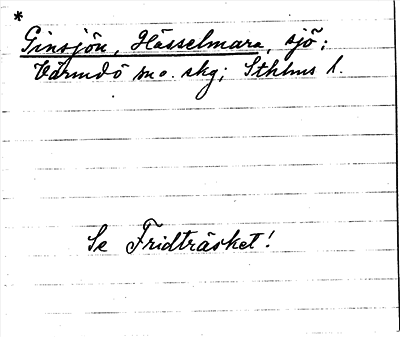 *
Ginsjön, Hässelmara, sjö;
Värmdö sn o. skg; Sthlms l.
Se Fridträsket!